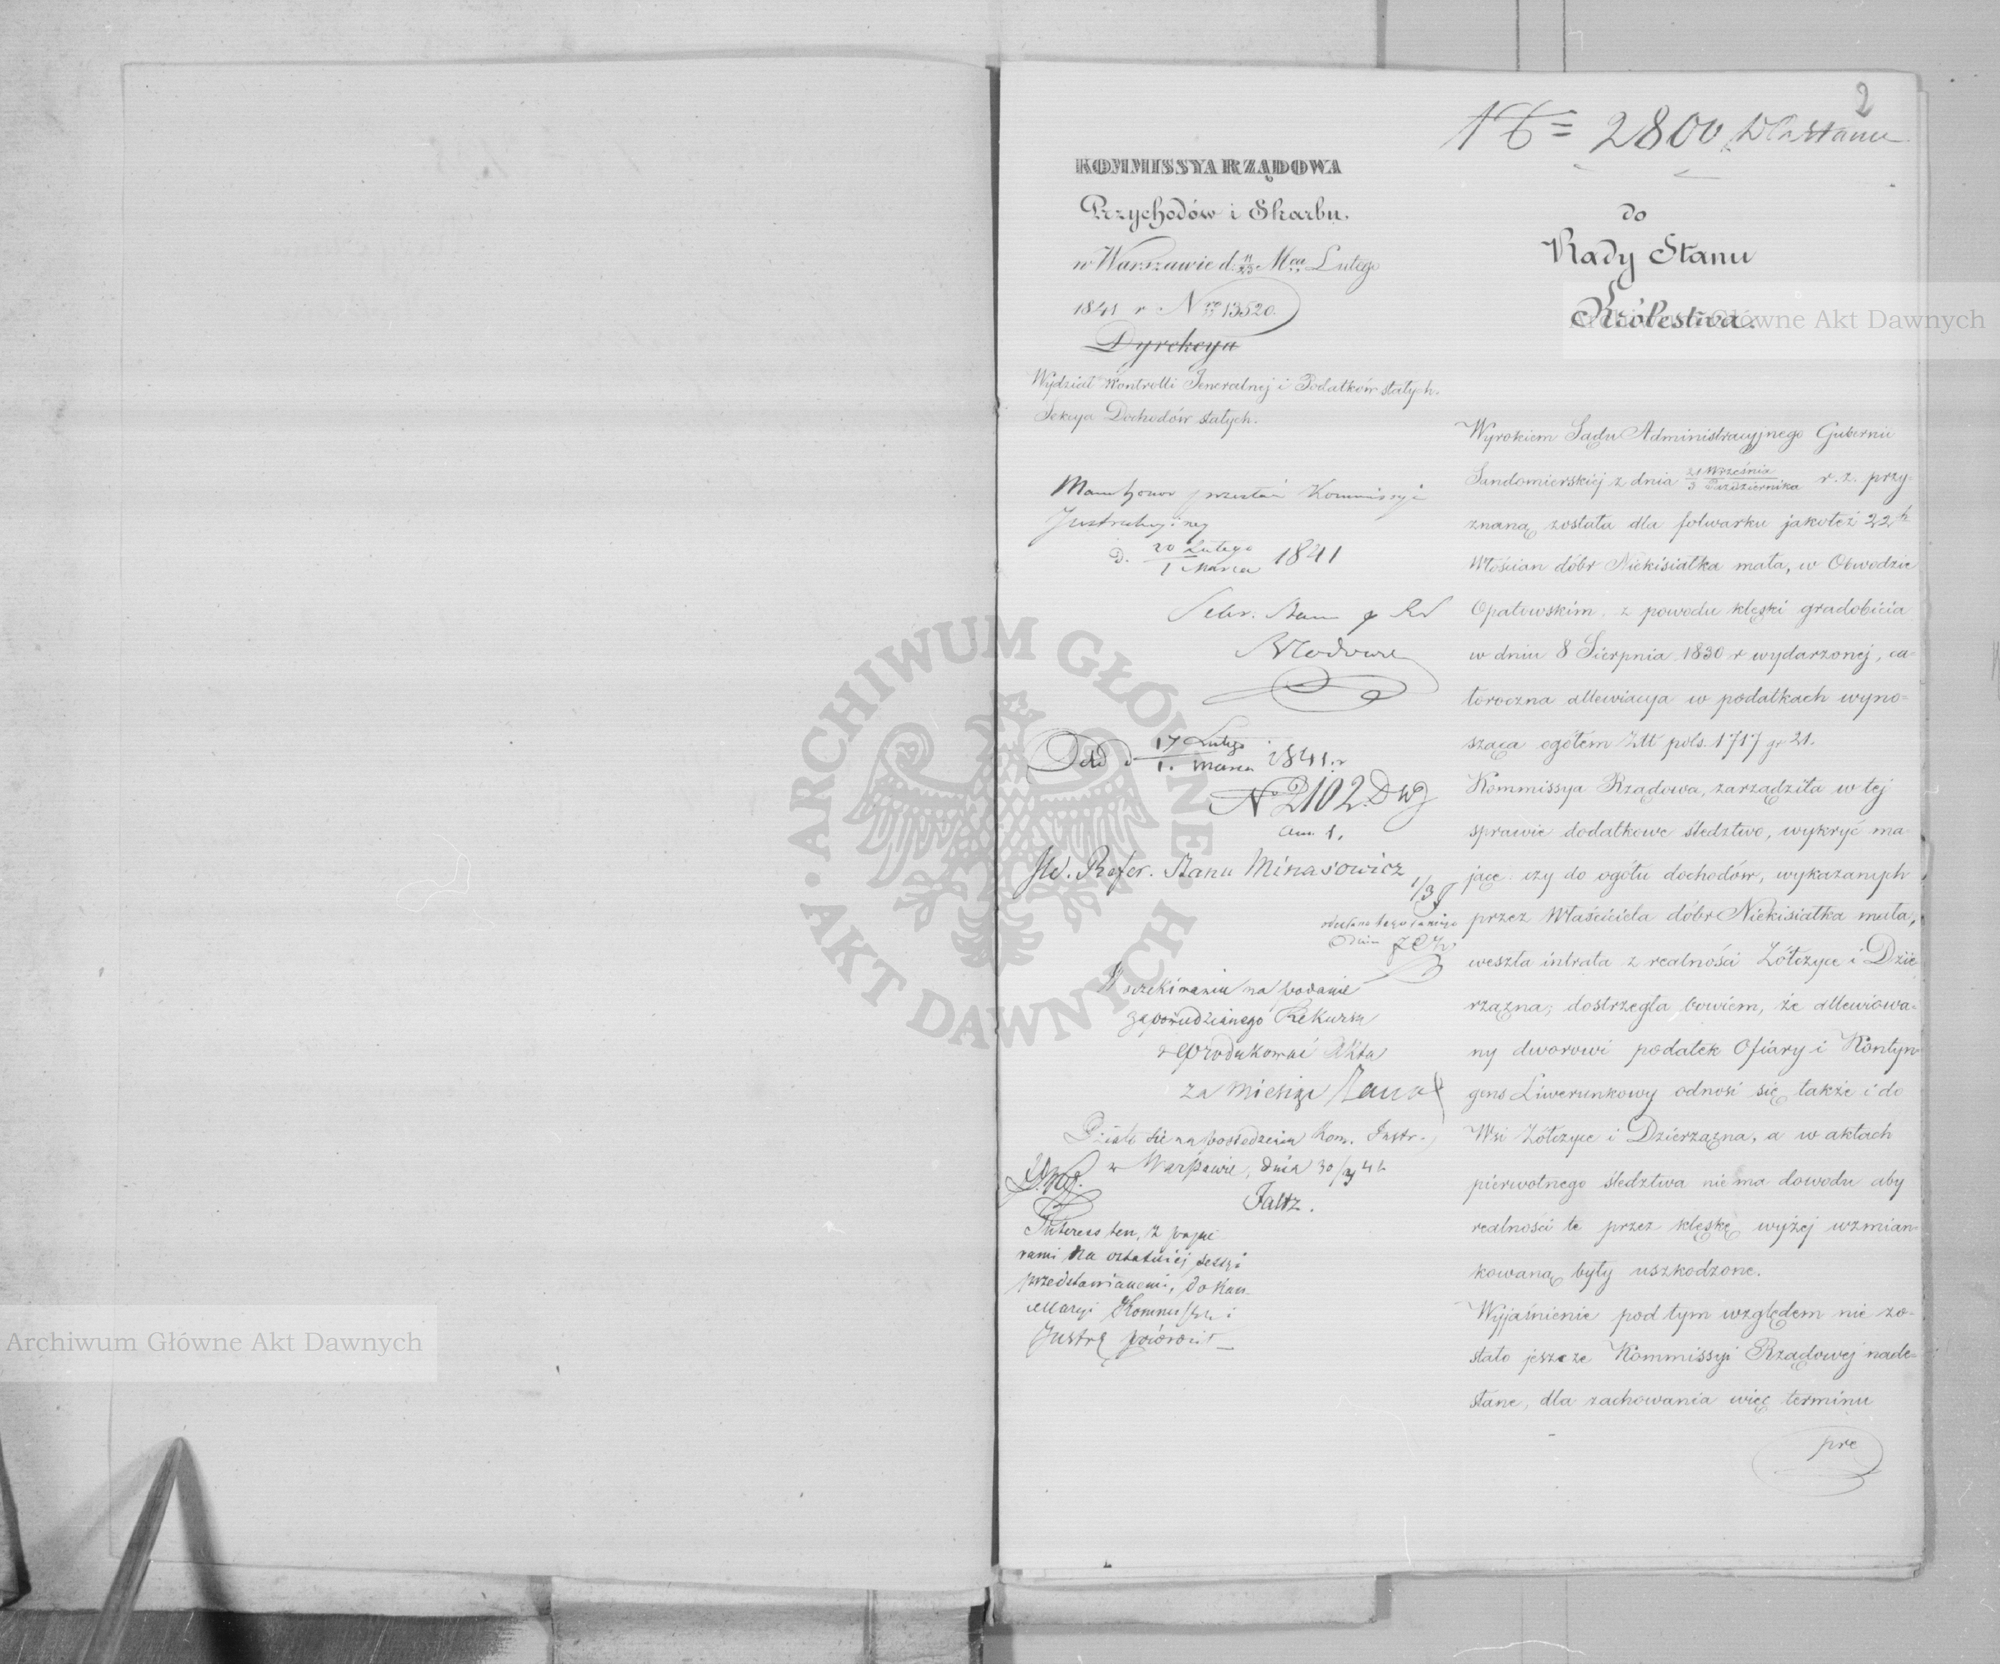 2
KOMMISSYA RZĄDOWA
Przychodów i Skarbu.
w Warszawie d. 11/23 Mca Lutego
1841 r N 13520.
Dyrekcya
Wydział Kontrolli Jeneralnej i Podatków stałych.
Sekcya Dochodów stałych.
przesłać Kommissyi
D. 20 Lutego / 1 Marca 1841
d 17 Lutego / 1. Marca 1841. r
N 2102.
JW. Refer. Stanu Minasowicz
W oczekiwaniu na podanie
zapowiedzianego Rekursu
reprodukować Akta
za miesiąc
Działo się na posiedzeniu Kom. Instr.
w Warszawie, dnia 30/3 41
Faltz.
Interess ten, z papie
rami na ostatniej sessyi
przedstawianemi, do Kan
cellaryi
Instr. powrócił
2800
do
Rady Stanu
Królestwa.
Wyrokiem Sądu Administracyjnego Gubernii
Sandomierskiej z dnia 21 Września / 3 Października r. z. przy-
znaną została dla folwarku jakoteż 22ch
Włościan dóbr Niekisiałka mała, w Obwodzie
Opatowskim, z powodu klęski gradobicia
w dniu 8 Sierpnia 1830 r wydarzonej, ca-
łoroczna allewiacya w podatkach wyno-
sząca ogółem Złt pols. 1717 gr 21.
Kommissya Rządowa, zarządziła w tej
sprawie dodatkowe śledztwo, wykryć ma-
jące czy do ogółu dochodów, wykazanych
przez Właściciela dóbr Niekisiałka mała,
weszła intrata z realności Żółczyce i Dzie-
rzązna, dostrzegła bowiem, że allewiowa-
ny dworowi podatek Ofiary i Kontyn-
gens Liwerunkowy odnosi się także i do
Wsi Żółczyce i Dzierzązna, a w aktach
pierwotnego śledztwa nie ma dowodu aby
realności te przez klęskę wyżej wzmian-
kowaną były uszkodzone.
Wyjaśnienie pod tym względem nie zo-
stało jeszcze Kommissyi Rządowej nade-
słane, dla zachowania więc terminu
pre
Archiwum Główne Akt Dawnych
ARCHIWUM GŁÓWNE AKT DAWNYCH
Archiwum Główne Akt Dawnych